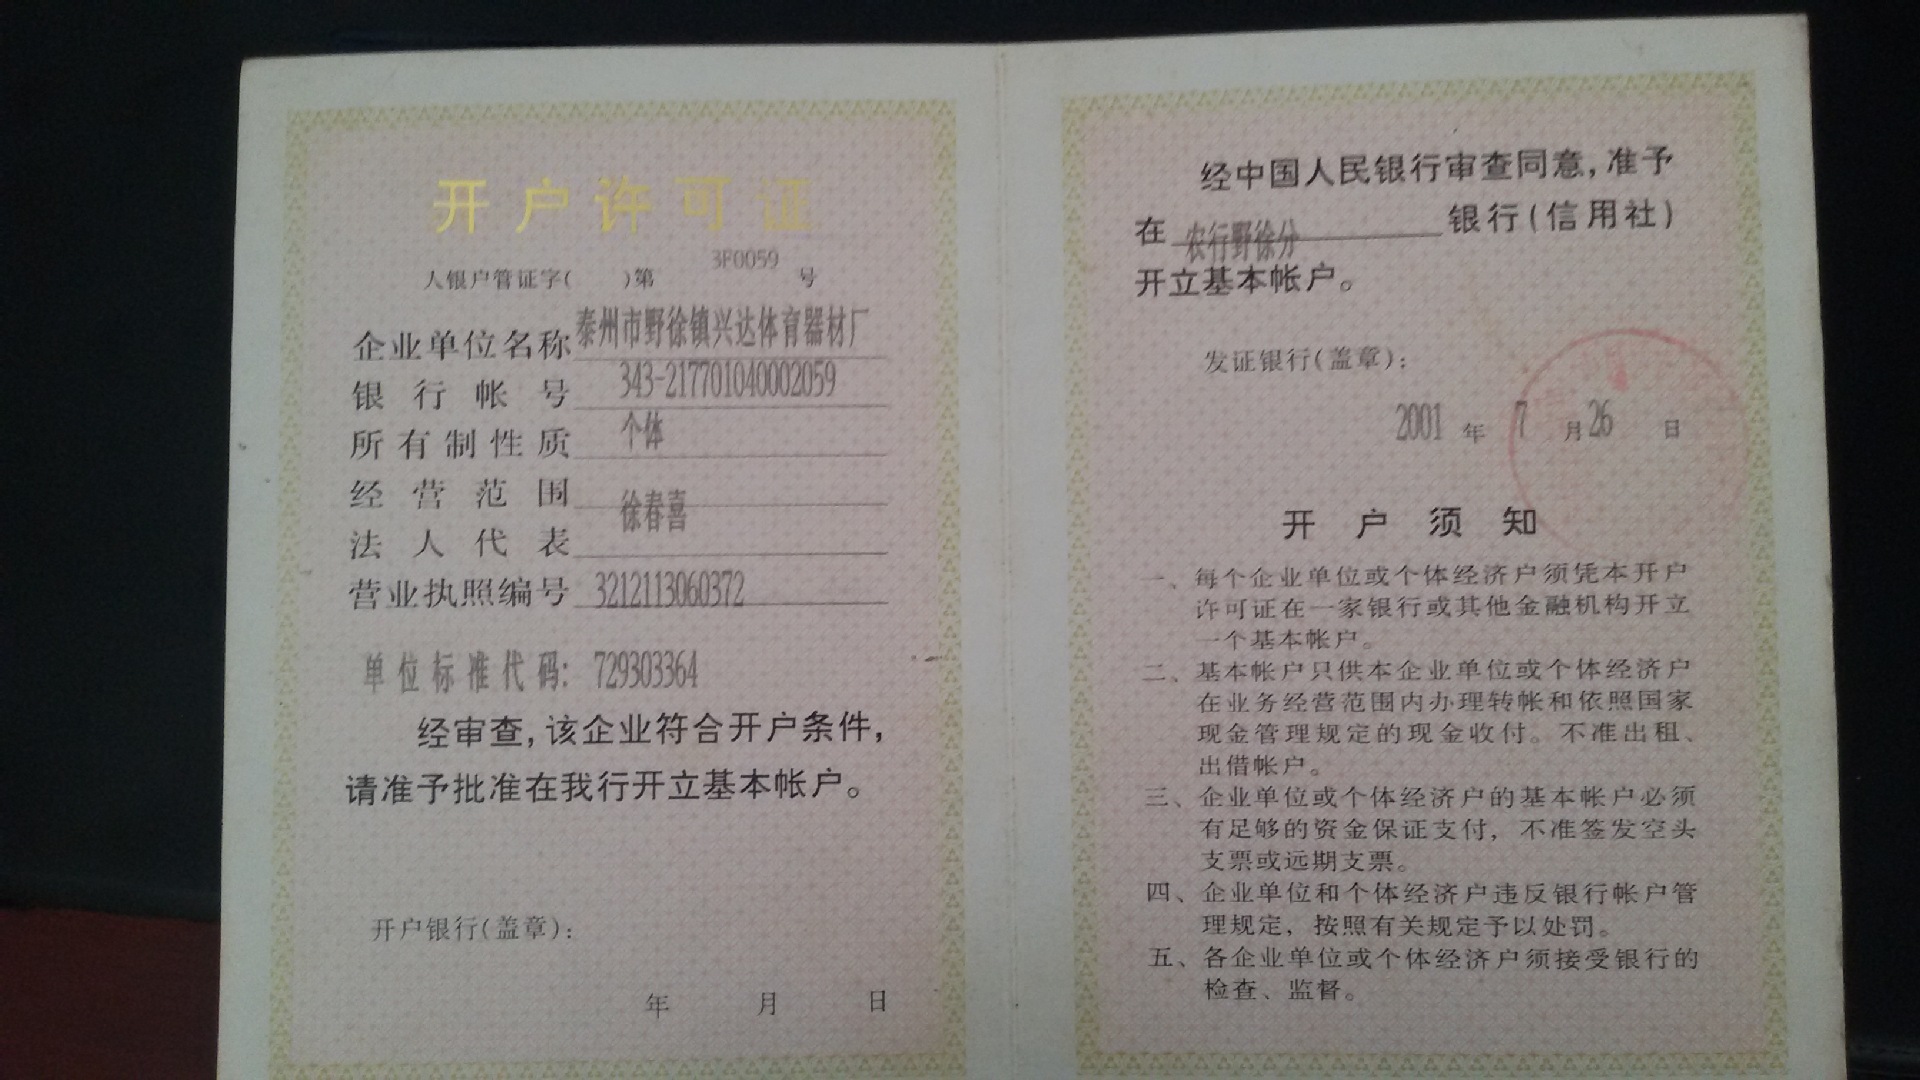 开户许可证
人银户管证字( )第 3F0059 号
企业单位名称 泰州市野徐镇兴达体育器材厂
银行帐号 343-217701040002059
所有制性质 个体
经营范围
法人代表 徐春喜
营业执照编号 3212113060372
单位标准代码: 729303364
经审查,该企业符合开户条件,
请准予批准在我行开立基本帐户。
开户银行(盖章):
年 月 日
经中国人民银行审查同意,准予
在 农行野徐分 银行(信用社)
开立基本帐户。
发证银行(盖章):
2001 年 7 月 26 日
开户须知
一、每个企业单位或个体经济户须凭本开户
许可证在一家银行或其他金融机构开立
一个基本帐户。
二、基本帐户只供本企业单位或个体经济户
在业务经营范围内办理转帐和依照国家
现金管理规定的现金收付。不准出租、
出借帐户。
三、企业单位或个体经济户的基本帐户必须
有足够的资金保证支付,不准签发空头
支票或远期支票。
四、企业单位和个体经济户违反银行帐户管
理规定,按照有关规定予以处罚。
五、各企业单位或个体经济户须接受银行的
检查、监督。